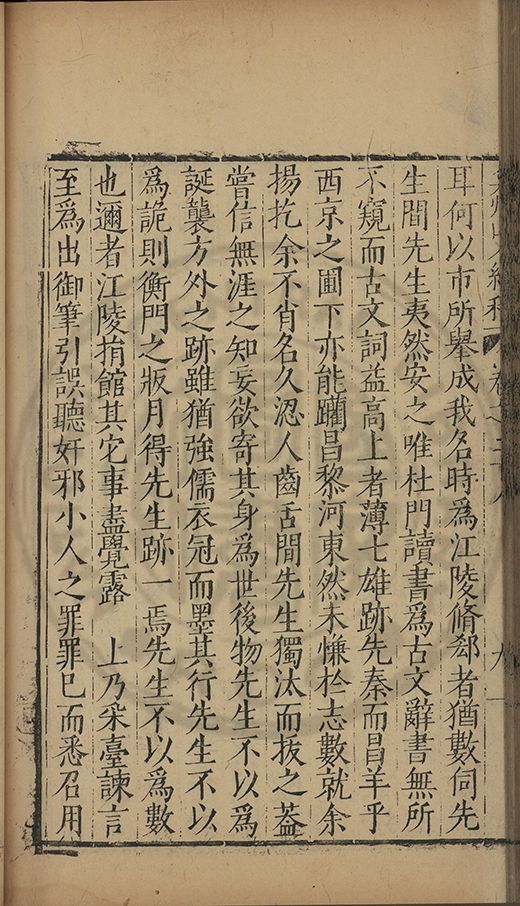 耳何以市所舉成我名時爲江陵脩郄者猶數伺先
生間先生夷然安之唯杜門讀書爲古文辭書無所
不窺而古文詞益高上者薄七雄跡先秦而昌羊乎
西京之圃下亦能躪昌黎河東然未慊於志數就余
揚扢余不肖名久涊人齒舌間先生獨汰而拔之葢
嘗信無涯之知妄欲寄其身爲世後物先生不以爲
誕襲方外之跡雖猶強儒衣冠而墨其行先生不以
爲詭則衡門之版月得先生跡一焉先生不以爲數
也邇者江陵捐館其它事盡覺露　上乃采臺諫言
至爲出御筆引誤聽奸邪小人之罪罪巳而悉召用